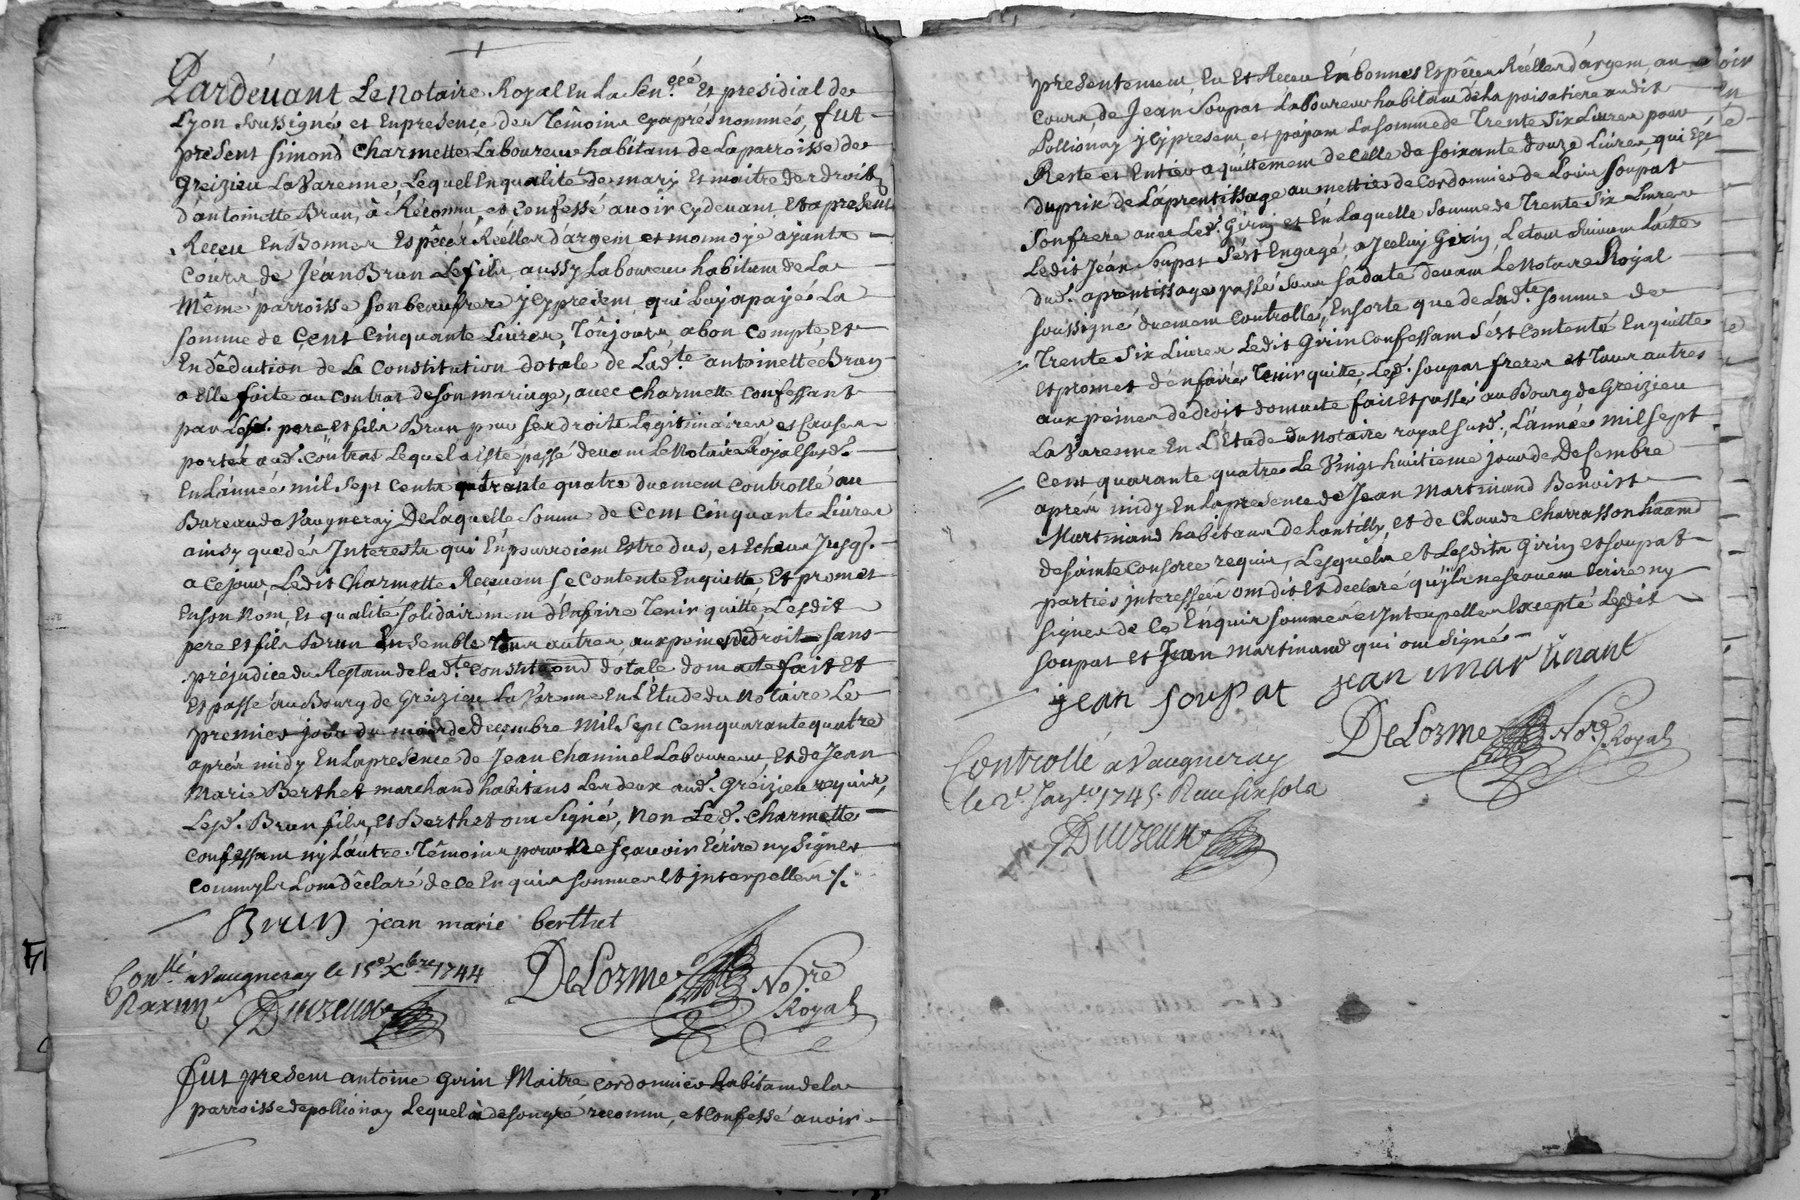 Pardevant Le Notaire Royal En La Sen.ceé Et presidial de
Lyon Soussigné et En presence des Têmoins cyaprés nommés, fut
present Simond Charmette Laboureur habitant de La parroisse de
Greizieu La Varenne Lequel En qualité de mary et maitre des droits
d'antoinette Brun, à Réconnu, et confessé avoir cydevant Et apresent
Receu En Bonnes Espêces Réélles d'argent et monnoye ayants
Cours de Jéan Brun Le fils, aussy Laboureur habitant de La
Même parroisse Son beaufrere jcy present, qui Luy a payés La
somme de Cent Cinquante Livres, Toûjours a bon Compte et
En dêduction de La Constitution dotale de Lad.te antoinette Brun
a Elle faite au Contrat de son mariage, avec Charmette Confessant
par Lesd. pere et fils Brun pour ses droits Legitimaires et Causes
portés aud. Contrat Lequel a Esté passé devant Le Notaire Royal Susd.
En L'année mil Sept Cents quarante quatre duement Controllé au
Bureau de Vaugneray De Laquelle Somme de Cent Cinquante Livres
ainsy que des Interests qui En pourroient Estre dus, et Echeus Jusqs.
a Ce jour, Ledit Charmette Recevant Se Contente En quitte Et promet
En son Nom, Et qualité solidairement d'En faire Tenir quitté Lesdit
pere et fils Brun Ensemble Tous autres, aux peines de droit Sans
prejudice du Restant de lad.te Constit.ond dotale dont acte fait Et
Et passé au Bourg de Greizieu La Varenne En L'Etude du Notaire Le
premier jour du mois de Decembre Mil Sept Cent quarante quatre
aprés midy En La presence de Jean Chaninel Laboureur, Et de Jean
Marie Berthet marchand habitans Les deux aud. Greizieu requis,
Lesd. Brun fils, et Berthet ont Signé, Non Led. Charmette
Confessant ny L'autre Têmoins pour ne Sçavoir Ecrire ny Signer
Comm'yls L'ont dêclaré de ce Enquis Sommés Et Jnterpellés ./.
Brun jean marie berthet
Con.llé a Vaugneray le 15e Xbre 1744 DeLorme No.re
Duvzeux Royal
Fut present antoine Girin Maitre Cordonnier habitant de la
parroisse de pollionay Lequel à de son gré reconnu, et Confessé avoir
presentement Eu Et Receu En bonnes Espêces Réélles d'argent au
Cours, de Jean Soupat Laboureur habitant de La poisatiere audit
Pollionay jcy present, et payant La somme de Trente Six Livres pour
Reste et Entier aquittement de Celle de Soixante douze Livres, qui Est
du prix de L'aprentissage au mettier de Cordonnier de Loüis Soupat
Son frere avec Led. Girin et En Laquelle Somme de Trente Six Livres
Ledit Jéan Soupat S'est Engagé, a Jceluy Girin, Le tout Suivant L'acte
dud. aprentissage passé Sous Sa date devant Le Notaire Royal
soussigné duement Controllé, En sorte que de Lad.te Somme de
Trente Six Livres Ledit Girin Confessant S'est Contenté En quitte
Et promet d'En faire Tenir quitte, Lesd. Soupat freres et Tous autres
aux peines de droit dont acte fait Et passé au Bourg de Greizieu
La Varenne En L'Etude du Notaire royal Susd., L'année mil Sept
Cent quarante quatre Le Vingt huitieme jour de Desembre
aprés midy En La presence de Jean Martinand Benoist
Martinand habitans de Lantilly, et de Claude Charrasson
de Sainte Consorce requis, Lesquels et Lesdits Girin et Soupat
parties jnteressées ont dit Et declaré qu'jls ne Scavent Ecrire ny
signer de Ce Enquis Sommés et Jnterpellés Excepté Ledit
Soupat et Jean Martinand qui ont Signés
jean Soupat jean mar tinant
DeLorme No.re Royal
Controllé a Vaugneray
le 2e Janv.er 1745 Receu six sols
Duvzeux